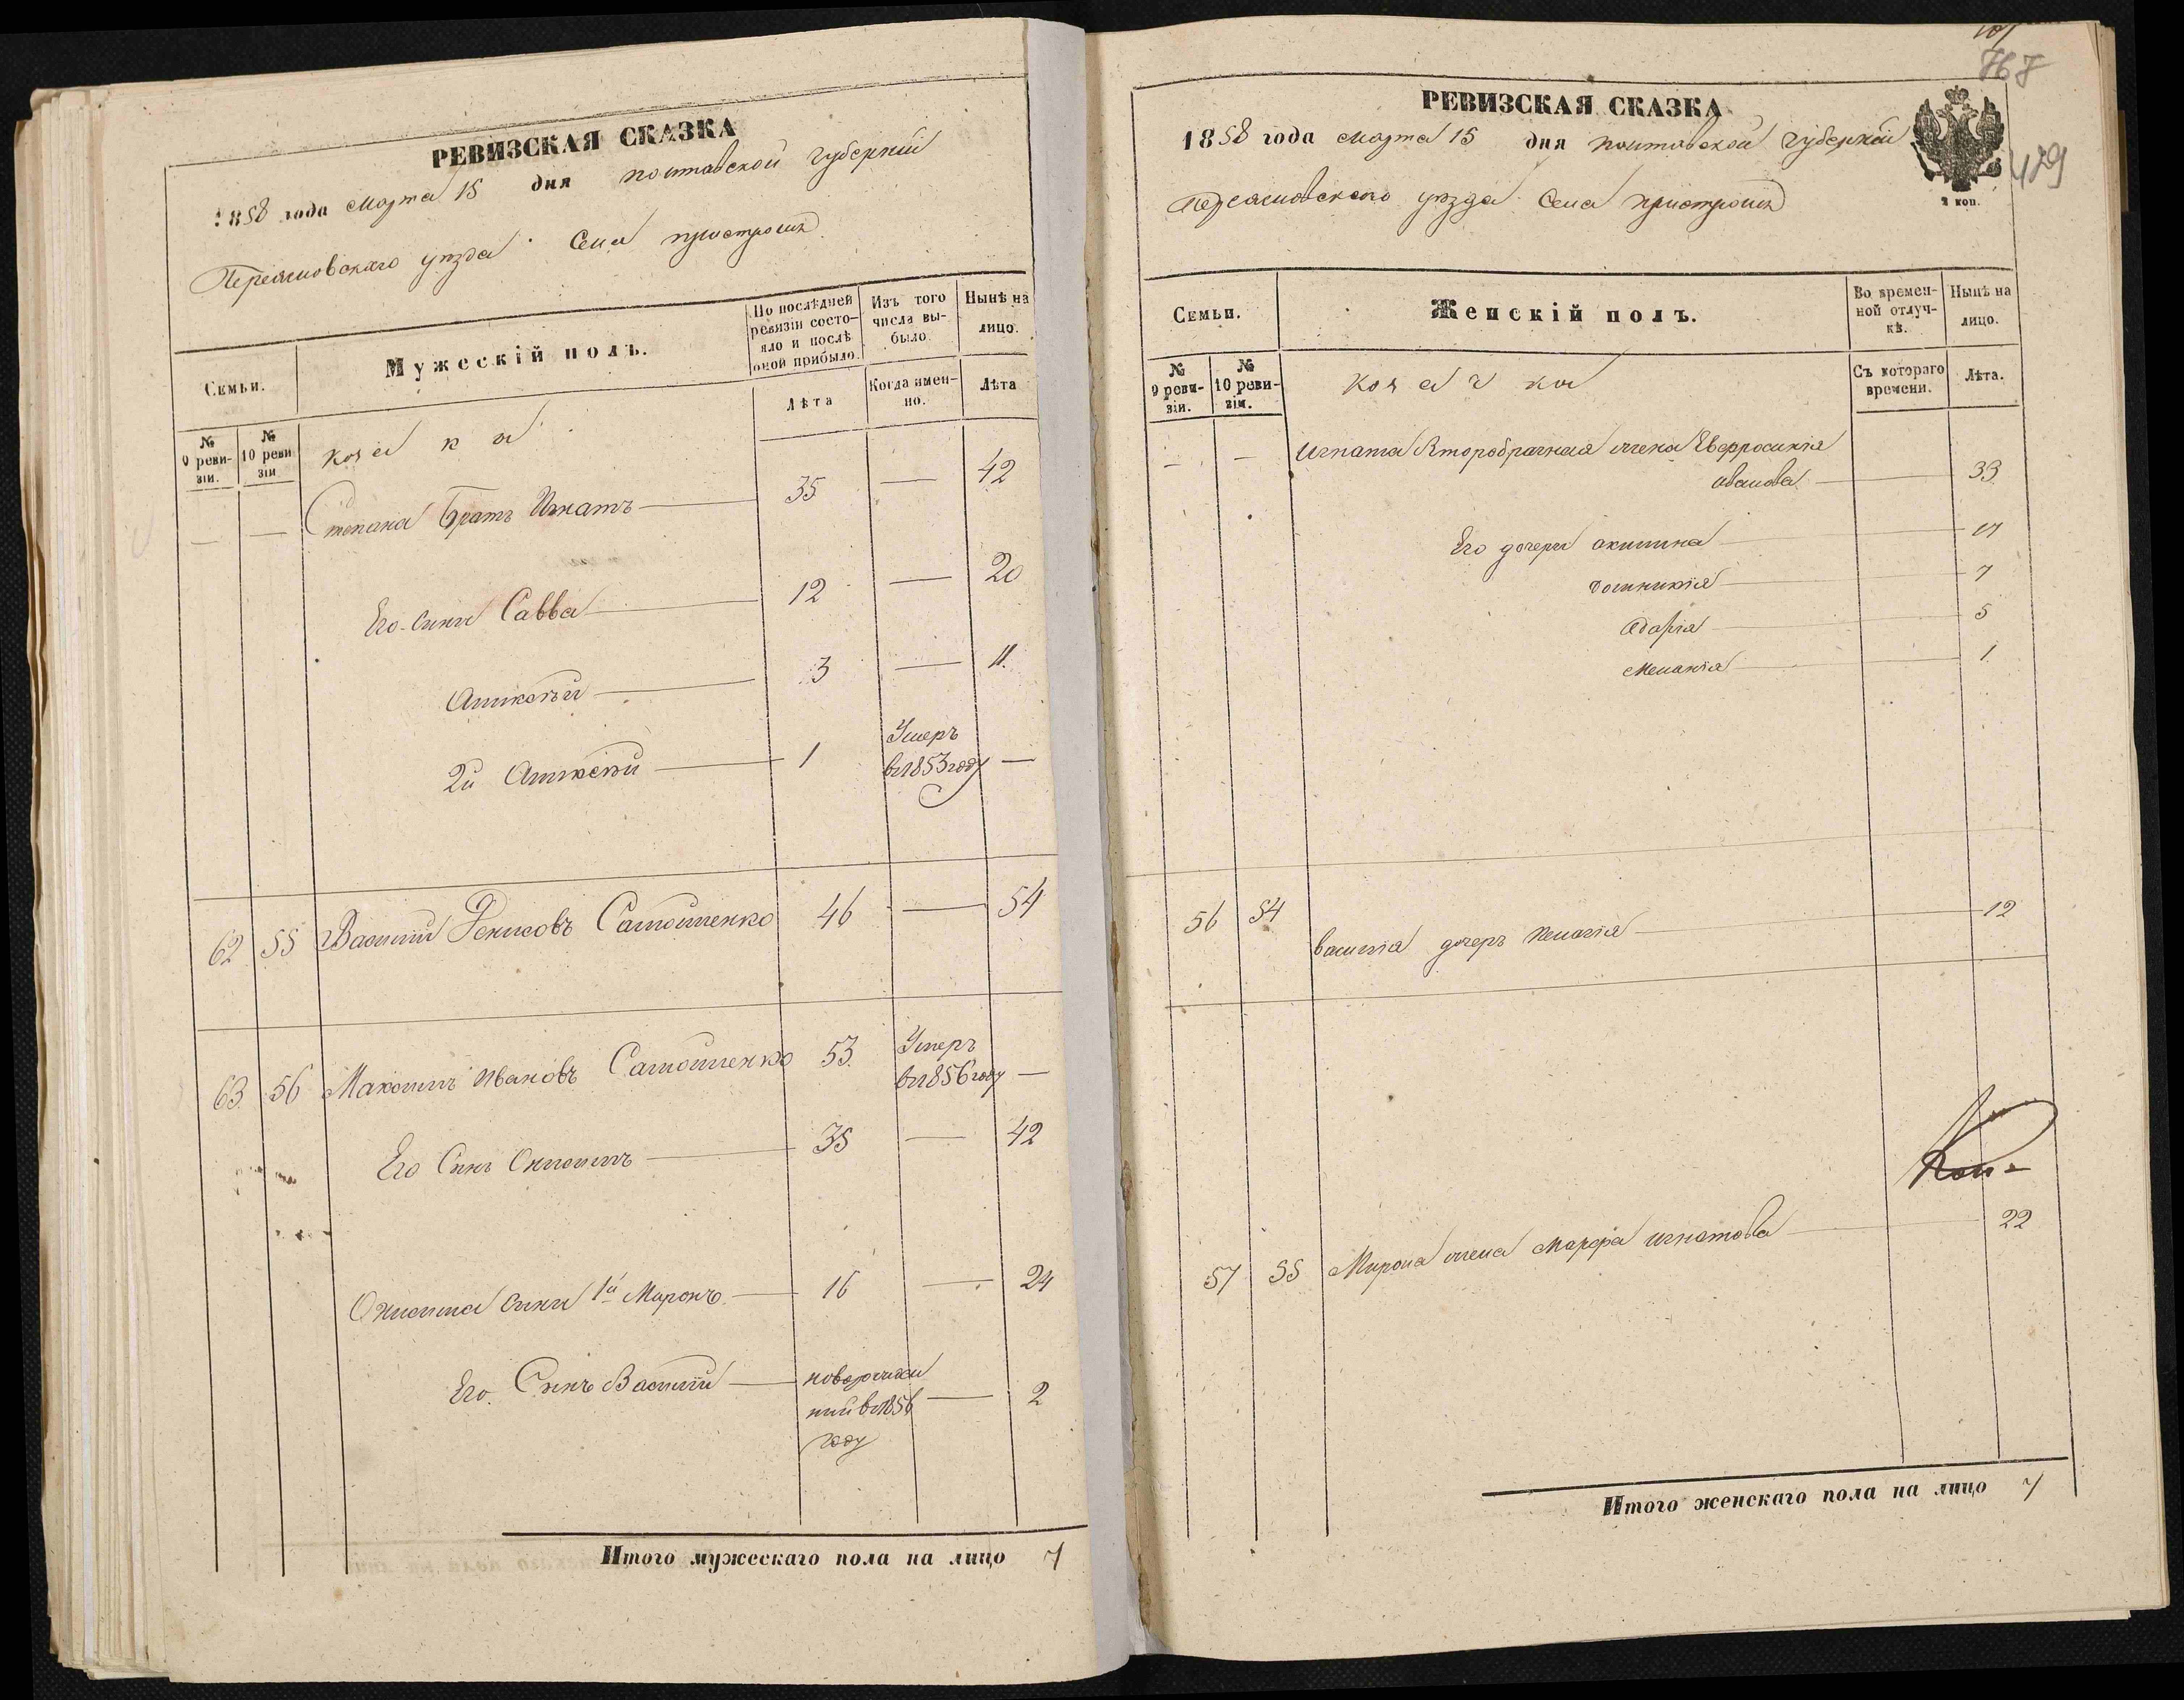 РЕВИЗСКАЯ СКАЗКА
1858 года Марта 15 дня Полтавской Губерній
Переяславскаго уѣзда Села Пристромъ
Семьи.
Мужескій полъ.
По послѣдней ревизіи состояло и послѣ оной прибыло.
Изъ того числа выбыло.
Нынѣ на лицо.
№ 9 ревизіи.
№ 10 ревизіи
козаки
Лѣта
Когда именно.
Лѣта
— — Степана Братъ Игнатъ 35 — 42
Его Сини Савва 12 — 20
Алиексѣй 3 — 11.
2й Алиексѣй 1 Умеръ в 1853 году —
62 55 Василий Денисовъ Самойленко 46 — 54
63. 56 Максимъ Ивановъ Самойленко 53. Умеръ в 1856 году —
Его Синъ Онисимъ 35 — 42
Онисима Сини 1й Миронъ 16 — 24
Его Синъ Василий новорожденний в 1856 году — 2
Итого мужескаго пола на лицо 7
767
479
РЕВИЗСКАЯ СКАЗКА
2 коп.
1858 года Марта 15 дня Полтавской Губерний
Переяславского уѣзда Села Пристромъ
Семьи.
Женскій полъ.
Во временной отлучкѣ.
Нынѣ на лицо.
№ 9 ревизіи.
№ 10 ревизіи.
козачки
Съ котораго времени.
Лѣта.
— — Игната Второбрачная жена Евфросинія
33
Его дочери акилина
Домникія 7
5
Меланія 1
56 54 василия дочеръ Пелагія 12
57 55 Мирона жена Марфа игнатова 22
Итого женскаго пола на лицо 7